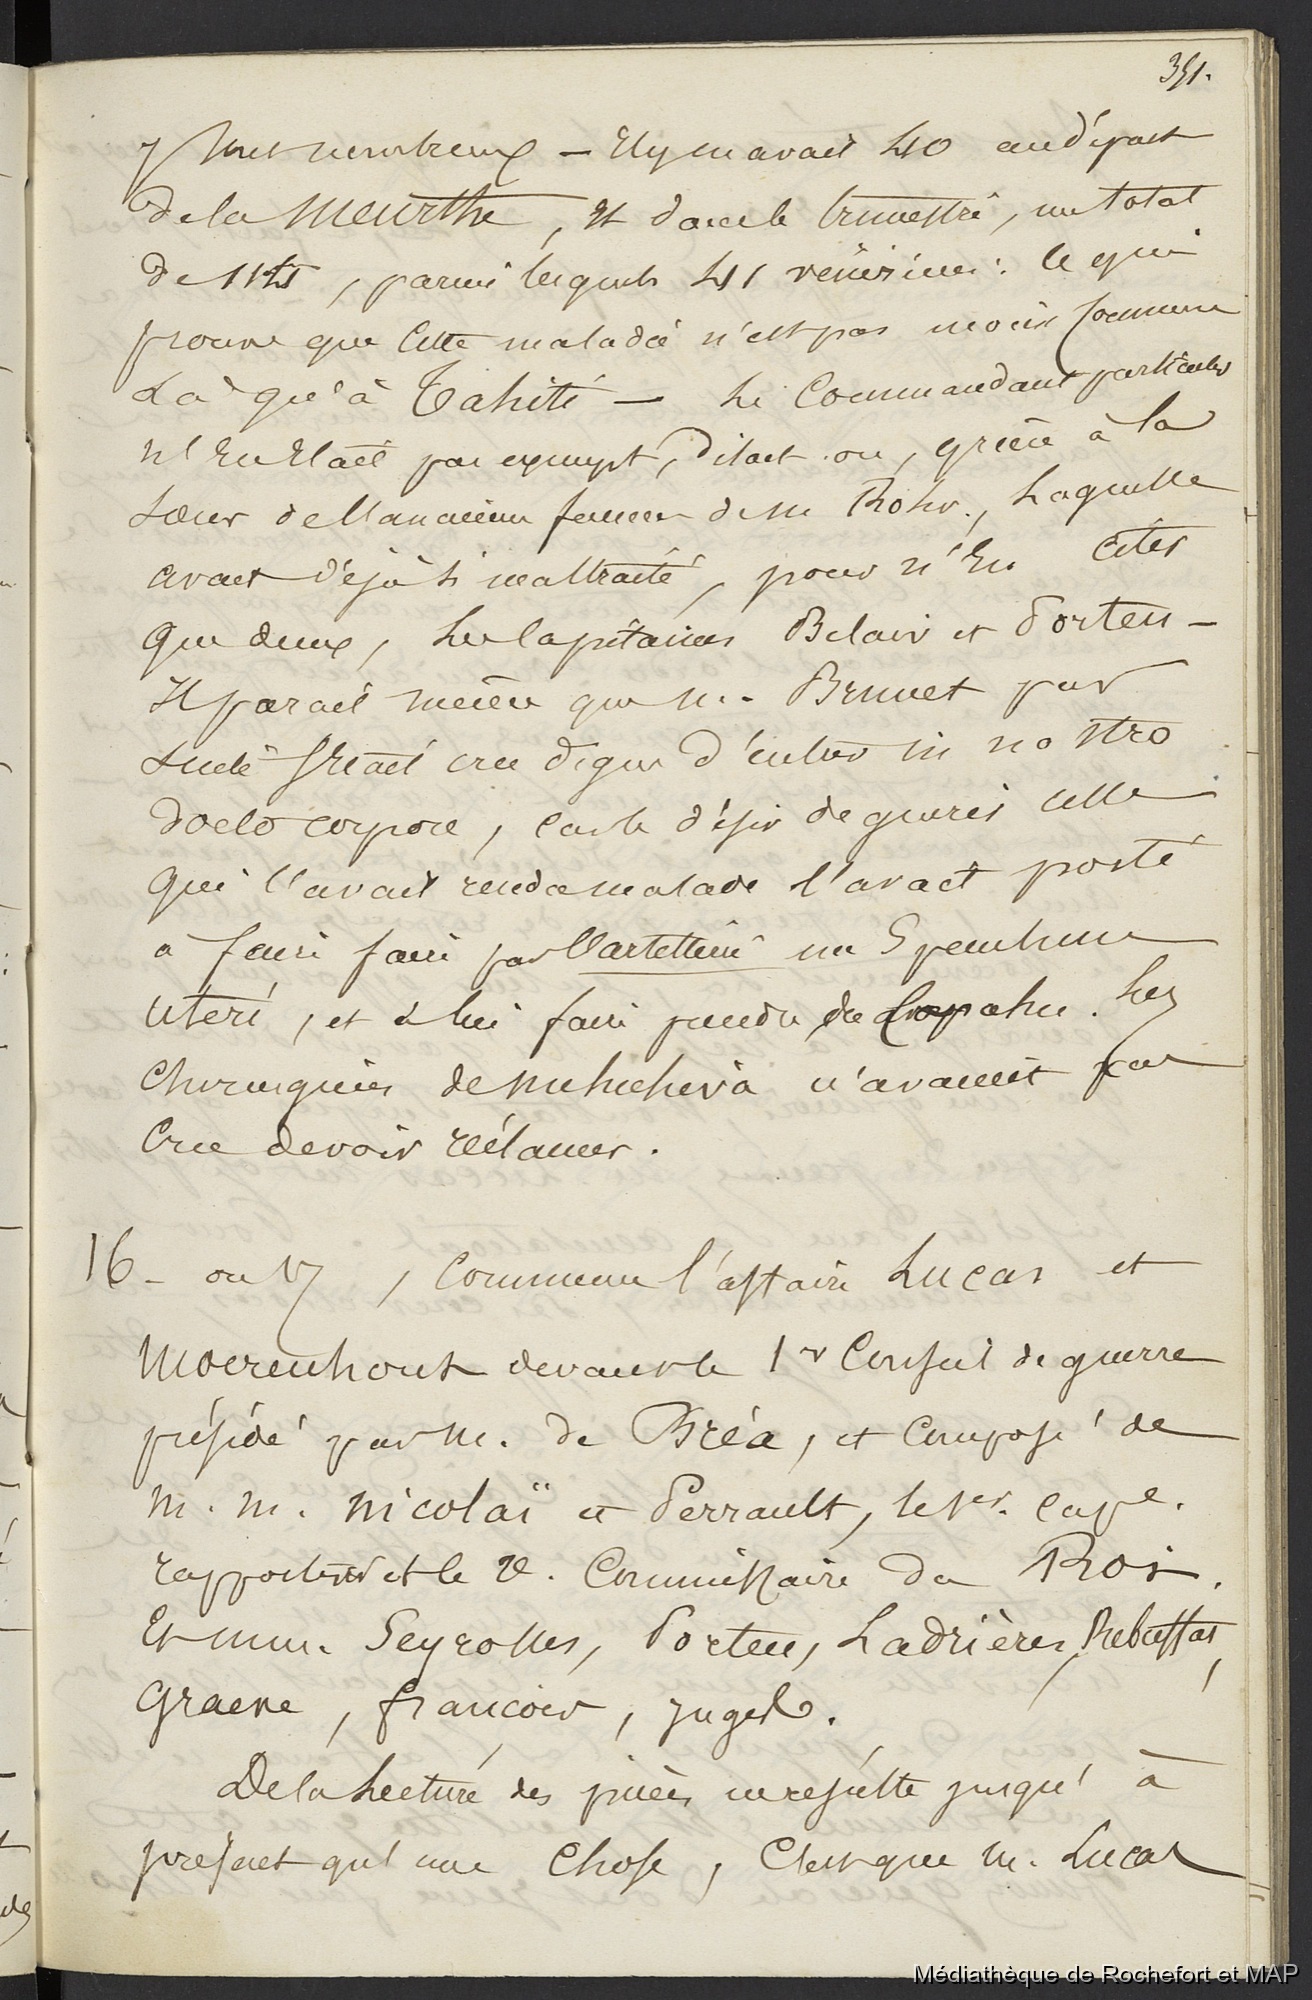 351.
y sont nombreux — Il y en avait 40 au départ
de la Meurthe, et dans le trimestre, un total
de 115, parmi lesquels 41 vénériens: ce qui
prouve que cette maladie n'est pas moins commune
là qu'à Tahiti — Le Commandant particulier
n'en était pas exempt, disait-on, grâce à la
soeur de l'ancienne femme de M Rohr, laquelle
avait déjà si maltraité, pour n'en citer
que deux, les capitaines Belair et Porteu —
Il parait même que M. Brunet par
suite s'était cru digne d'entrer in nostro
docto corpore, car le désir de guérir celle
qui l'avait rendu malade l'avait porté
à faire faire par un Speculum
uteri, et à lui faire prendre du Copahu. Les
Chirurgiens de Nuhuheva n'avaient pas
cru devoir réclamer.
16 - ou 17, commence l'affaire Lucas et
Moerenhout devant le 1er Conseil de guerre
présidé par M. de Bréa, et composé de
M. M. Nicolaï et Perrault, le 1er. cape.
rapporteur et le 2e. Commissaire du Roi.
Et mm. Seyrolles, Porteu, Ladrières, Rebuffat,
Graeve, françois, juges.
De la Lecture des pièces ne résulte jusqu'à
présent qu'une chose, c'est que m. Lucas
Médiathèque de Rochefort et MAP